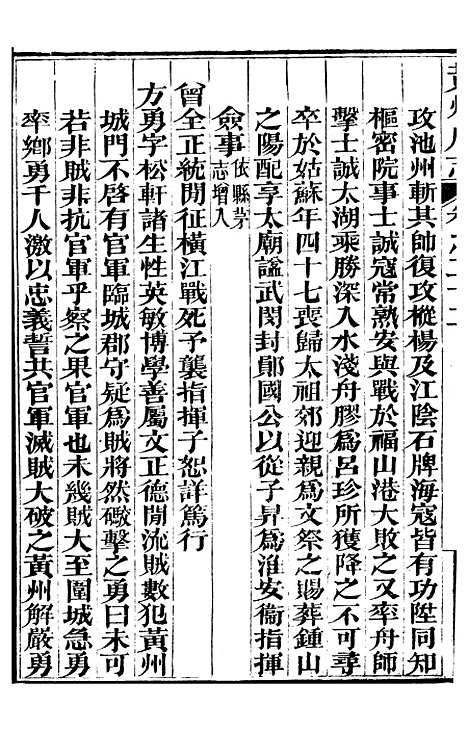 攻池州斬其帥復攻樅楊及江陰石牌海寇皆有功陞同知
樞密院事士誠寇常熟安與戰於福山港大敗之又率舟師
擊士誠太湖乘勝深入水淺舟膠爲呂珍所獲降之不可尋
卒於姑蘇年四十七喪歸太祖郊迎親爲文祭之賜葬鍾山
之陽配享太廟諡武閔封鄖國公以從子昇爲淮安衞指揮
僉事依縣茅志增入
曾全正統閒征橫江戰死予襲指揮子恕詳篤行
方勇字松軒諸生性英敏博學善屬文正德閒流賊數犯黃州
城門不啓有官軍臨城郡守疑爲賊將然礮擊之勇曰未可
若非賊非抗官軍乎察之果官軍也未幾賊大至圍城急勇
率鄉勇千人激以忠義誓共官軍滅賊大破之黃州解嚴勇